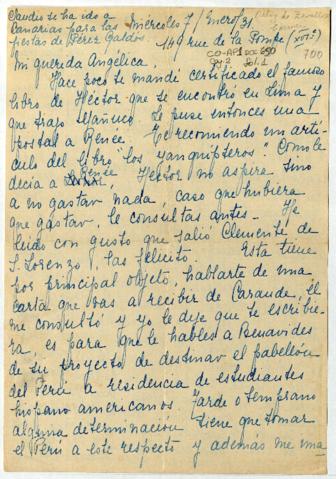 Claudio se ha ido a
Canarias para las
fiestas de Pérez Galdós.
Miércoles 7/Enero/31
149 rue de la Pompe (XVIe)
700
Mi querida Angélica.
Hace poco te mandé certificado el famoso
libro de Héctor que se encontró en Lima y
que trajo Mañuco. Le puse entonces una
postal a Renée. Te recomiendo un artí
culo del libro "los yanquipteros". Como le
decía a Renée, Hector no aspira sino
a no gastar nada, caso que hubiera
que gastar, le consultas antes. He
leído con gusto que salió Clemente de
S. Lorenzo, las felicito. Esta tiene
por principal objeto, hablarte de una
carta que vas al recibir de Caraude, él
me consultó y yo le dije que te escribie
ra, es para que le hables a Benavides
de su proyecto de destinar el pabellón
del Perú a residencia de estudiantes
hispano americanos. Tarde o temprano
alguna determinación tiene que tomar
el Perú a este respecto y además me una